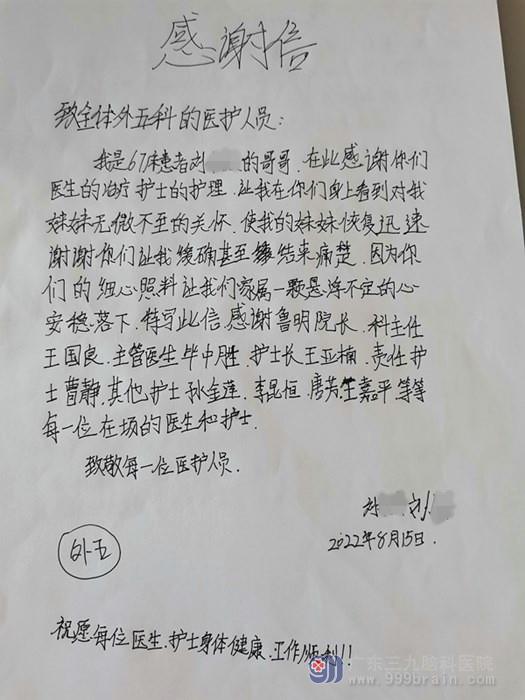 感谢信
致全体外五科的医护人员：
我是67床患者刘 的哥哥，在此感谢你们
医生的治疗护士的护理，让我在你们身上看到对我
妹妹无微不至的关怀，使我的妹妹恢复迅速
谢谢你们让我 确甚至 结束痛楚，因为你
们的细心照料让我们家属一颗悬浮不定的心
安稳落下，特写此信，感谢鲁明院长，科主任
王国良，主管医生毕中胜，护士长王亚楠，责任护
士曹静，其他护士孙金莲，李昆恒，唐芳，竺嘉平，等等
每一位在场的医生和护士．
致敬每一位医护人员．
刘
2022年8月15日．
外五
祝愿每位医生，护士身体健康，工作顺利！！
广东三九脑科医院
www.999brain.com